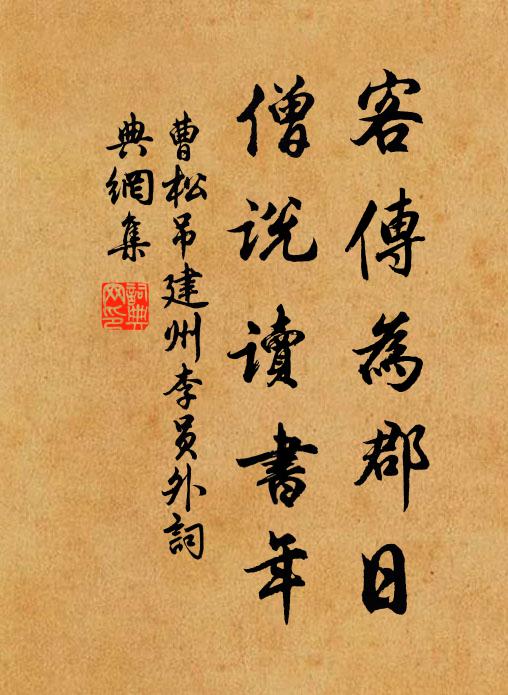 客傳為郡日
僧説讀書年
曹松吊建州李员外詞
典網集
詞典網印